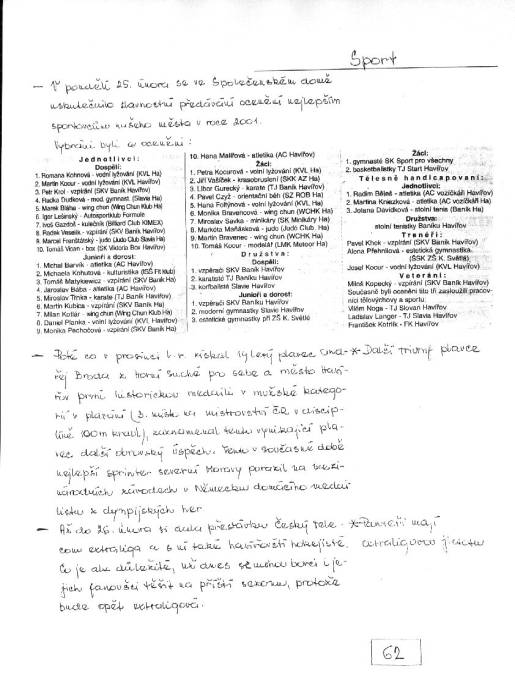 Sport
- V pondělí 25. února se ve Společenském domě
uskutečnilo slavnostní předávání ocenění nejlepším
sportovcům našeho města v roce 2001.
Vybráni byli a oceněni:
Jednotlivci:
Dospělí:
1. Romana Kohnová - volní lyžování (KVL Ha)
2. Martin Kocur - volní lyžování (KVL Havířov)
3. Petr Krol - vzpírání (SKV Baník Havířov)
4. Radka Ďudková - mod. gymnast. (Slavia Ha)
5. Marek Bláha - wing chun (Wing Chun Klub Ha)
6. Igor Lešinský - Autosportklub Formule
7. Ivoš Gazdoš - kulečník (Billiard Club KIMEX)
8. Radek Veselík - vzpírání (SKV Baník Havířov)
9. Marcel Franštátský - judo (Judo Club Slavia Ha)
10. Tomáš Vican - box (SK Viktoria Box Havířov)
Junioři a dorost:
1. Michal Barvík - atletika (AC Havířov)
2. Michaela Knhutová - kulturistika
3. Tomáš Matykiewicz - vzpírání (SKV Baník Ha)
4. Jaroslav Bába - atletika (AC Havířov)
5. Miroslav Trnka - karate (TJ Baník Havířov)
6. Martin Kubica - vzpírání (SKV Baník Ha)
7. Milan Kotlár - wing chun (Wing Chun Klub Ha)
8. Daniel Planka - volní lyžování (KVL Havířov)
9. Monika Pechočová - vzpírání (SKV Baník Ha)
10. Hana Malířová - atletika (AC Havířov)
Žáci:
1. Petra Kocurová - volní lyžování (KVL Ha)
2. Jiří Vašíček - krasobruslení (SKK AZ Ha)
3. Libor Gurecký - karate (TJ Baník Havířov)
4. Pavel Czyž - orientační běh (SZ ROB Ha)
5. Hana Foltýnová - volní lyžování (KVL Ha)
6. Monika Bravencová - wing chun (WCHK Ha)
7. Miroslav Savka - minikáry (SK Minikáry Ha)
8. Markéta Maňásková - judo (Judo Club. Ha)
9. Martin Bravenec - wing chun (WCHK Ha)
10. Tomáš Kocur - modelář (LMK Meteor Ha)
Družstva:
Dospělí:
1. vzpěrači SKV Baník Havířov
2. karatisté TJ Baníku Havířov
3. korfbalisté Slavie Havířov
Junioři a dorost:
1. vzpěrači SKV Baníku Havířov
2. moderní gymnastky Slavie Havířov
3. estetické gymnastky při ZŠ K. Světlé
Žáci:
1. gymnasté SK Sport pro všechny
2. basketbalistky TJ Start Havířov
Tělesně handicapovaní:
Jednotlivci:
1. Radim Běleš - atletika (AC vozíčkáři Ha)
2. Martina Kniezková - atletika (AC vozíčkáři Ha)
3. Jolana Davidková - stolní tenis (Baník Ha)
Družstva:
stolní tenistky Baníku Havířov
Trenéři:
Pavel Khek - vzpírání (SKV Baník Havířov)
Alena Přehnilová - estetická gymnastika
(SSK ZŠ K. Světlá)
Josef Kocur - volní lyžování (KVL Havířov)
Veteráni:
Miloš Kopecký - vzpírání (SKV Baník Havířov)
Současně byli oceněni tito tři zasloužilí pracov-
níci tělovýchovy a sportu:
Vilém Noga - TJ Slovan Havířov
Ladislav Langer - TJ Slavia Havířov
František Kotrlík - FK Havířov
- Poté co v prosinci l. r. získal tylený plavec Ond- * Další triumf plavce
řej Broda z Horní Suché pro sebe a město Haví-
řov první historickou medaili v mužské katego-
rii v plavání (3. místo na mistrovství ČR v discip-
líně 100 m kraul), zaznamenal tento vynikající pla-
vec další obrovský úspěch. Tento v současné době
nejlepší sprinter severní Moravy porazil na mezi-
národních závodech v Německu domácího medai
listu z olympijských her
- Až do 26. února si dala přestávku Český tele- * Panteři mají
com extraliga a s ní také havířovští hokejisté. extraligovou jistotu
Co je ale důležité, už dnes se mohou borci i je-
jich fanoušci těšit na příští sezonu, protože
bude opět extraligová.
62